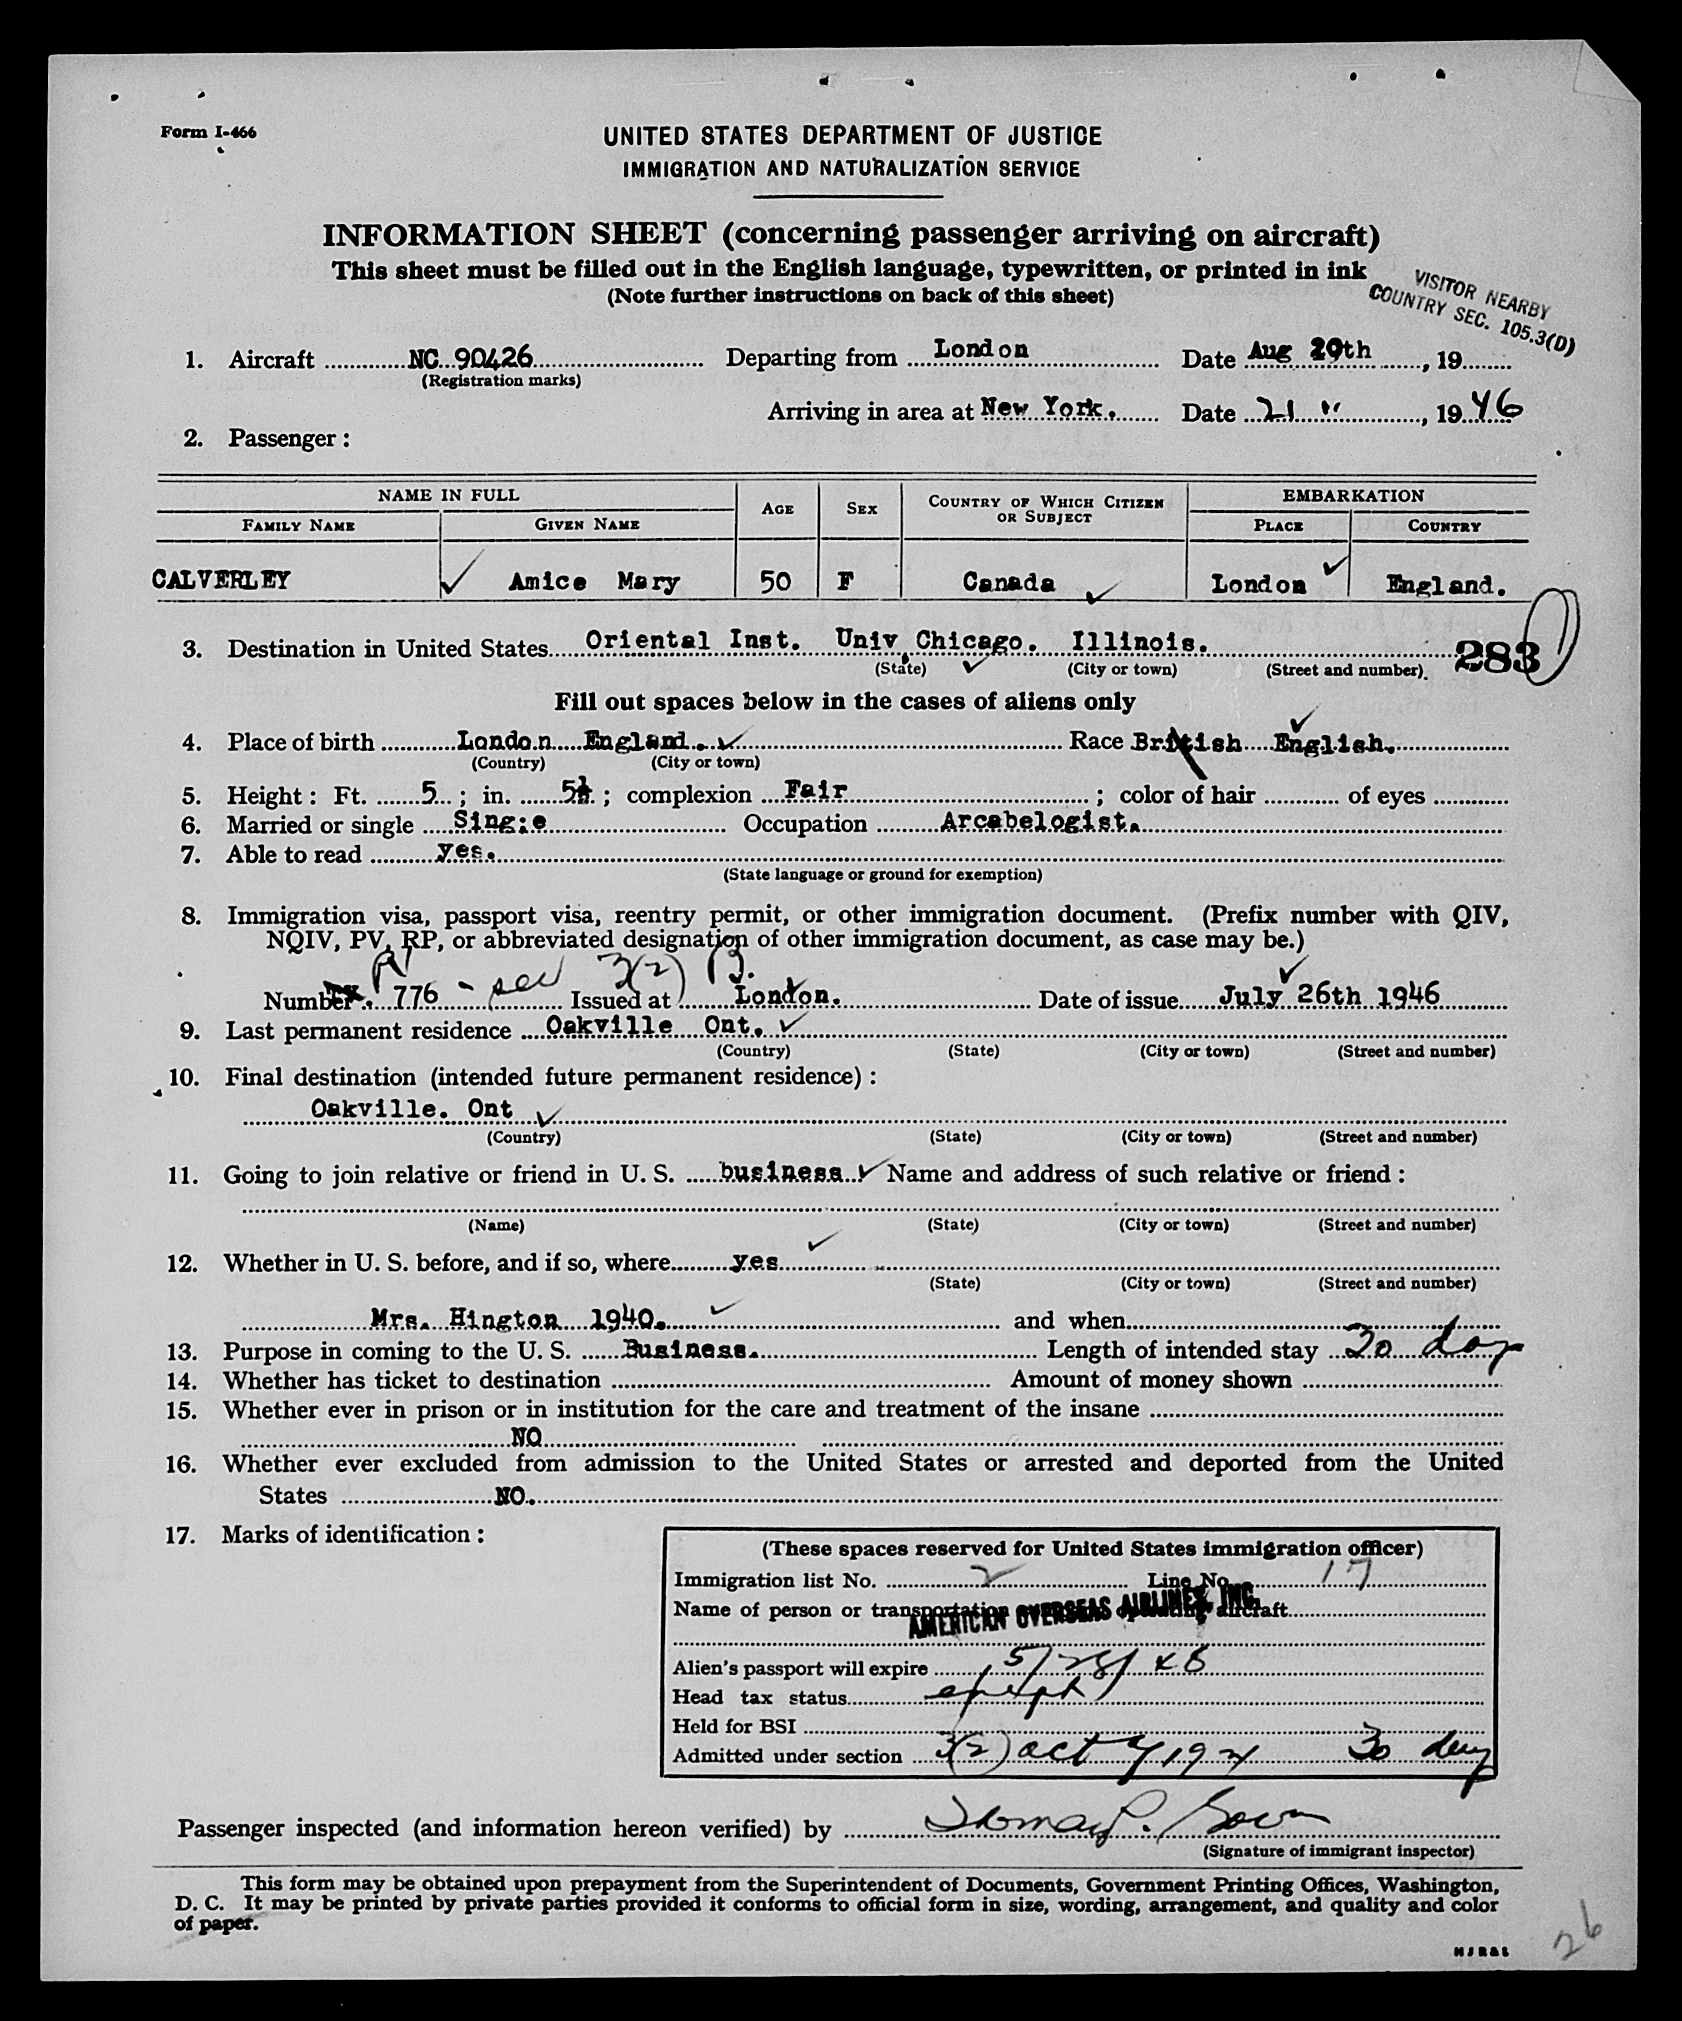 Form I-466
UNITED STATES DEPARTMENT OF JUSTICE
IMMIGRATION AND NATURALIZATION SERVICE
INFORMATION SHEET (concerning passenger arriving on aircraft)
This sheet must be filled out in the English language, typewritten, or printed in ink
(Note further instructions on back of this sheet)
VISITOR NEARBY
COUNTRY SEC. 105.3(D)
1. Aircraft NC 90426 Departing from London Date Aug 20th, 19
(Registration marks)
Arriving in area at New York. Date 21 " , 1946
2. Passenger:
NAME IN FULL AGE SEX COUNTRY OF WHICH CITIZEN OR SUBJECT EMBARKATION
FAMILY NAME GIVEN NAME PLACE COUNTRY
CALVERLEY Amice Mary 50 F Canada London England.
3. Destination in United States Oriental Inst. Univ Chicago. Illinois. 283
(State) (City or town) (Street and number)
Fill out spaces below in the cases of aliens only
4. Place of birth London England. Race British English.
(Country) (City or town)
5. Height: Ft. 5; in. 5½; complexion Fair; color of hair of eyes
6. Married or single Sing:e Occupation Arcabelogist.
7. Able to read yes.
(State language or ground for exemption)
8. Immigration visa, passport visa, reentry permit, or other immigration document. (Prefix number with QIV,
NQIV, PV, RP, or abbreviated designation of other immigration document, as case may be.)
PV 3(2) B.
Number 776 - sec Issued at London. Date of issue July 26th 1946
9. Last permanent residence Oakville Ont.
(Country) (State) (City or town) (Street and number)
10. Final destination (intended future permanent residence):
Oakville. Ont
(Country) (State) (City or town) (Street and number)
11. Going to join relative or friend in U. S. business Name and address of such relative or friend:
(Name) (State) (City or town) (Street and number)
12. Whether in U. S. before, and if so, where yes
(State) (City or town) (Street and number)
Mrs. Hington 1940. and when
13. Purpose in coming to the U. S. Business. Length of intended stay 30 day
14. Whether has ticket to destination Amount of money shown
15. Whether ever in prison or in institution for the care and treatment of the insane
NO
16. Whether ever excluded from admission to the United States or arrested and deported from the United
States NO.
17. Marks of identification:
(These spaces reserved for United States immigration officer)
Immigration list No. 2 Line No. 17
Name of person or transportation operating aircraft
AMERICAN OVERSEAS AIRLINES, INC.
Alien's passport will expire 5/28/48
Head tax status
Held for BSI
Admitted under section 3(2) act of 1924 30 day
Passenger inspected (and information hereon verified) by
(Signature of immigrant inspector)
This form may be obtained upon prepayment from the Superintendent of Documents, Government Printing Offices, Washington,
D. C. It may be printed by private parties provided it conforms to official form in size, wording, arrangement, and quality and color
of paper.
26